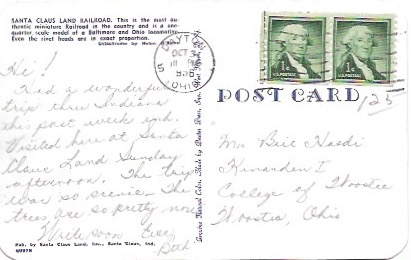 SANTA CLAUS LAND RAILROAD. This is the most au-
thentic miniature Railroad in the country and is a one-
quarter scale model of a Baltimore and Ohio locomotive.
Even the rivet heads are in exact proportion.
Hi!
Had a wonderful
trip thru Indiana
this past week end.
Visited here at Santa
Claus Land Sunday
afternoon. The trip
was so scenic. The
trees are so pretty now.
Write soon
Pub. by Santa Claus Land, Inc., Santa Claus, Ind.
DAYTON
OCT
PM
OHIO
1¢ 1¢
U.S. POSTAGE U.S. POSTAGE
POST CARD
125
Mr
College of Wooster
Wooster, Ohio